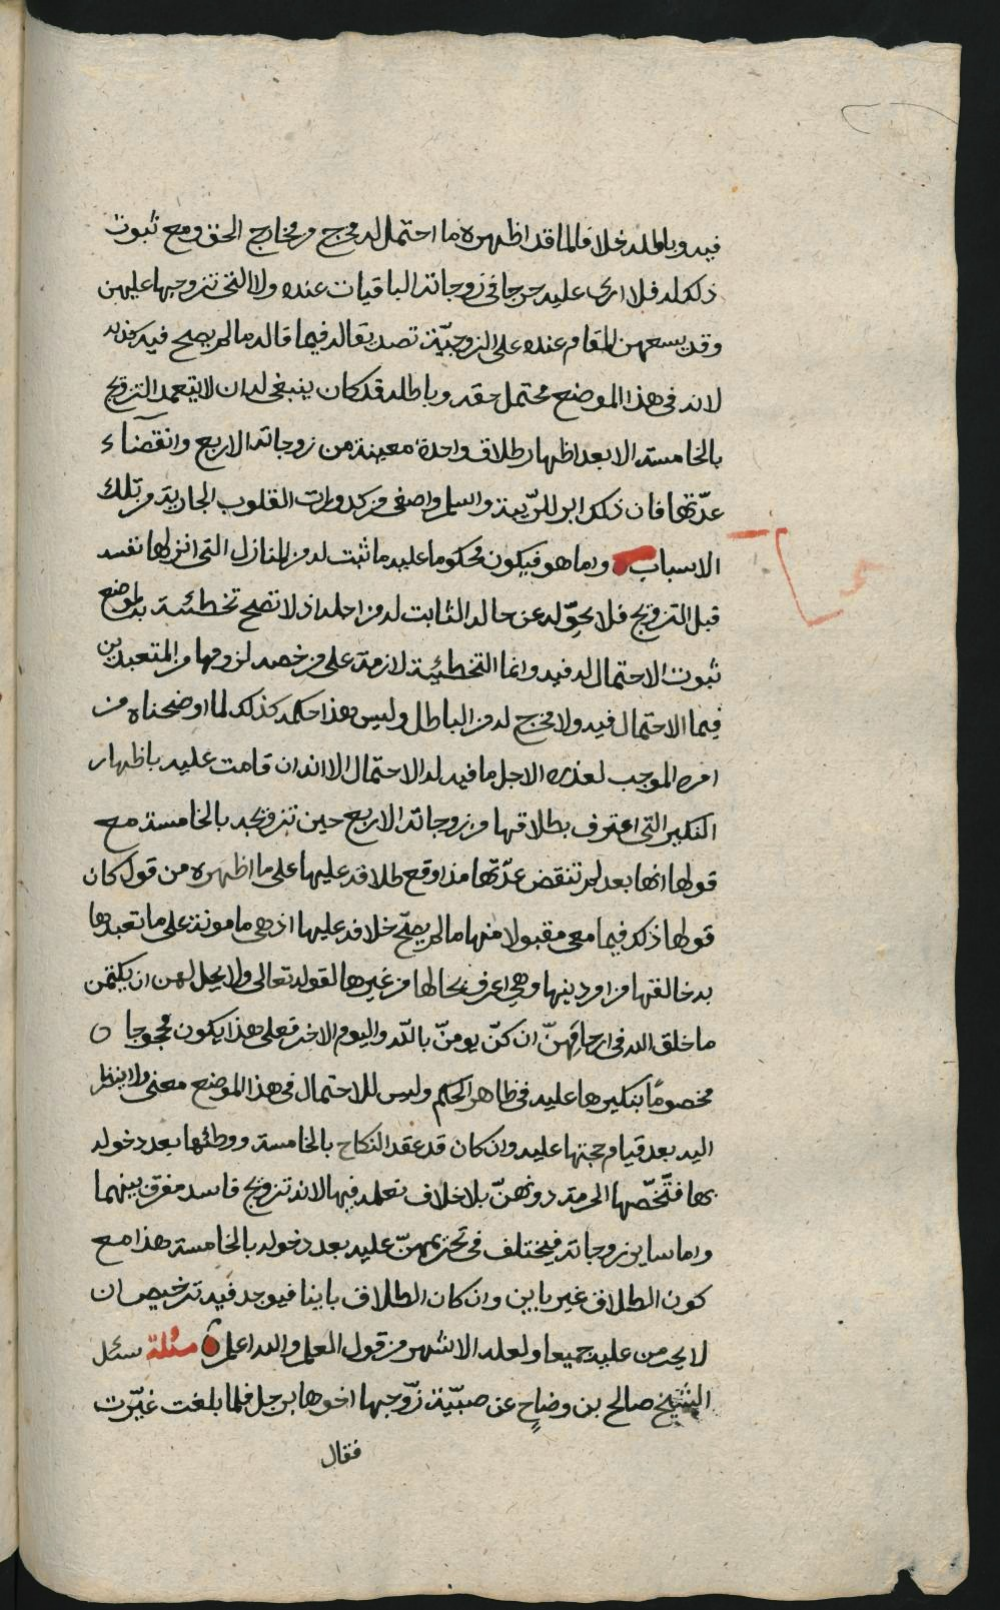 فيه وباطله خلافا لما قد اظهره ما احتمل له مخرج من مخارج الحق ومع ثبوت
ذلك له فلا ارى عليه حرجا في زوجاته الباقيات عنده ولا التي تزوجها عليهن
وقد يسعهن المقام عنده على الزوجيّة تصديقا له فيما قاله ما لم يصح فيه كذبه
لانه في هذا الموضع محتمل حقه وباطله قد كان ينبغي له ان لا يتعمد التزويج
بالخامسة الا بعد اظهار طلاق واحدة معينة من زوجاته الاربع وانقضاء
عدّتها فان ذلك ابر للرّيبة واسلم واصفى من كدورات القلوب الجارية من تلك
الاسباب واما هو فيكون محكوما عليه ما ثبت له من المنازل التي انزلها نفسه
قبل التزويج فلا يحوّله عن حاله الثابت له من اجله اذ لا تصح تخطئته بموضع
ثبوت الاحتمال له فيه وانما التخطئية لازمة على من خصه لزومها من المتعبدين
فيما لا احتمال فيه ولا مخرج له من الباطل وليس هذا حكمه كذلك لما اوضحناه من
امره الموجب لعذره لاجل ما فيه له الاحتمال الا انه ان قامت عليه باظهار
النكير التي اعترف بطلاقها من زوجاته الاربع حين تزويجه بالخامسة مع
قولها انها بعد لم تنقض عدّتها مذ اوقع طلاقه عليها على ما اظهره من قول كان
قولها ذلك فيما معي مقبولا منها ما لم يصحّ خلافه عليها اذ هي مامونة على ما تعبدها
به خالقها من امر دينها وهي اعرف بحالها من غيرها لقوله تعالى ولا يحل لهن ان يكتمن
ما خلق الله في ارحامهنّ ان كنّ يومنّ بالله واليوم الاخر فعلى هذا يكون محجوجا
مخصوما بنكيرها عليه في ظاهر الحكم وليس للاحتمال في هذا الموضع معنى ولا ينظر
اليه بعد قيام حجتها عليه وان كان قد عقد النكاح بالخامسة ووطئها بعد دخوله
بها فتخصّها الحرمة دونهنّ بلا خلاف نعلمه فيها لانه تزويج فاسد مفرق بينهما
واما ساير زوجاته فيختلف في تحريمهنّ عليه بعد دخوله بالخامسة هذا مع
كون الطلاق غير باين وان كان الطلاق باينا فيوجد فيه ترخيص ان
لا يحرمن عليه جميعا ولعله الاشهر من قول المسلمين والله اعلم مسئلة سئل
الشيخ صالح بن وضاح عن صبيّة زوّجها اخوها برجل فلما بلغت غيّرت
فقال